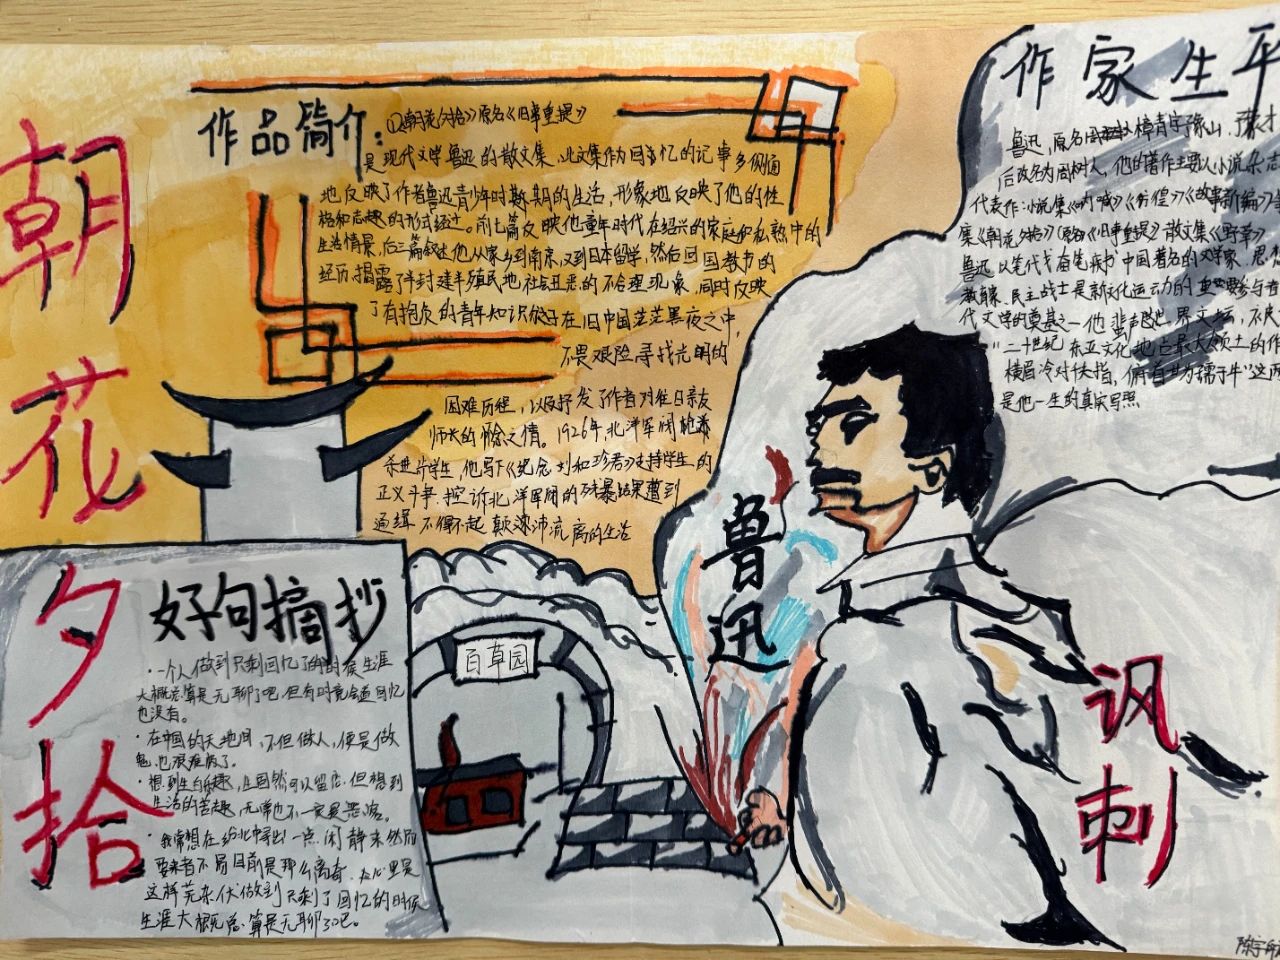 朝花夕拾
作品简介:
《朝花夕拾》原名《旧事重提》
是现代文学鲁迅的散文集,此文集作为回忆的记事多侧面
地反映了作者鲁迅青少年时期的生活,形象地反映了他的性
格和志趣的形式经过。前七篇反映他童年时代在绍兴的家庭和私塾中的
生活情景,后三篇叙述他从家乡到南京,又到日本留学,然后回国教书的
经历,揭露了半封建半殖民地社会丑恶的不合理现象,同时反映
了有抱负的青年知识份子在旧中国茫茫黑夜之中,
不畏艰险寻找光明的
困难历程,以及抒发了作者对往日亲友
师长的怀念之情。1926年,北洋军阀枪
杀进步学生,他写下《纪念刘和珍君》支持学生的
正义斗争,控诉北洋军阀的残暴结果遭到
通缉不得不起颠沛流离的生活
作家生平
鲁迅,原名周 樟青字豫山,豫才
后改名为周树人,他的著作主要以小说杂志
代表作:小说集《呐喊》《彷徨》《故事新编》
集《朝花夕拾》(原名《旧事重提》散文集《野草》
鲁迅以笔代戈奋笔疾书中国著名的文学家、思想
教育家、民主战士是新文化运动的重要参与者
代文学的奠基之一他蜚声世界文坛,
"二十世纪东亚文化地图占最大领土的作
横眉冷对千夫指,俯首甘为孺子牛"这两
是他一生的真实写照
好句摘抄
·一个人做到只剩回忆了的时候生涯
大概总算是无聊了吧,但有时竟会连回忆
也没有。
·在中国的天地间,不但做人,便是做
鬼,也艰难极了。
·想到生的乐趣,生固然可以留恋,但想到
生活的苦趣,无常也不一定是恶客。
·我常想在纷扰中寻出一点闲静来然而
要来者不易目前是那么离奇,在心里是
这样芜杂 做到只剩了回忆的时候
生涯大概总算是无聊了吧。
百草园
鲁迅
讽刺
陈宇